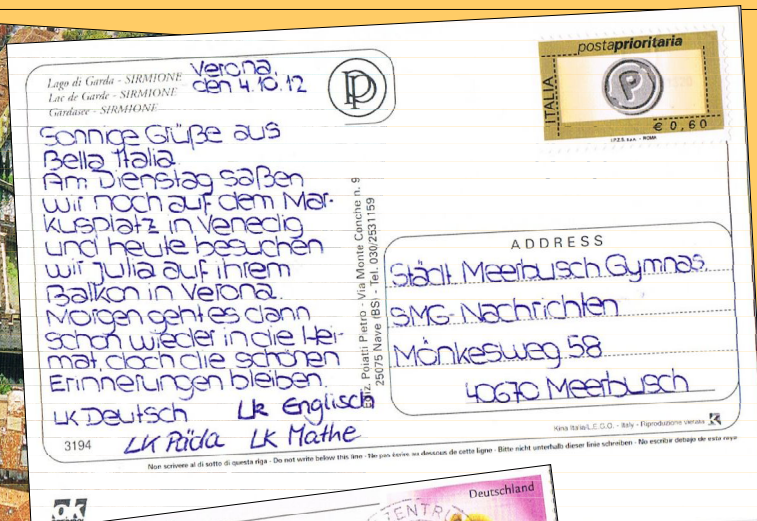 Lago di Garda - SIRMIONE
Lac de Garde - SIRMIONE
Gardasee - SIRMIONE
Verona,
den 4.10.12
PP
Sonnige Grüße aus
Bella Italia.
Am Dienstag saßen
wir noch auf dem Mar-
kusplatz in Venedig
und heute besuchen
wir Julia auf ihrem
Balkon in Verona.
Morgen geht es dann
schon wieder in die Hei-
mat, doch die schönen
Erinnerungen bleiben.
LK Deutsch LK Englisch
LK Päda LK Mathe
3194
Ediz. Poiatti Pietro - Via Monte Conche n. 9
25075 Nave (BS) - Tel. 030/2531159
postaprioritaria
ITALIA
P
€ 0,60
I.P.Z.S. S.p.A. - ROMA
ADDRESS
Städt. Meerbusch Gymnas.
SMG-Nachrichten
Mönkesweg 58
40670 Meerbusch
Kina Italia/L.E.G.O. - Italy - Riproduzione vietata K
Non scrivere al di sotto di questa riga - Do not write below this line - Ne pas écrire au dessous de cette ligne - Bitte nicht unterhalb dieser linie schreiben - No escribir debajo de esta raya
ok
Deutschland
ZENTRU